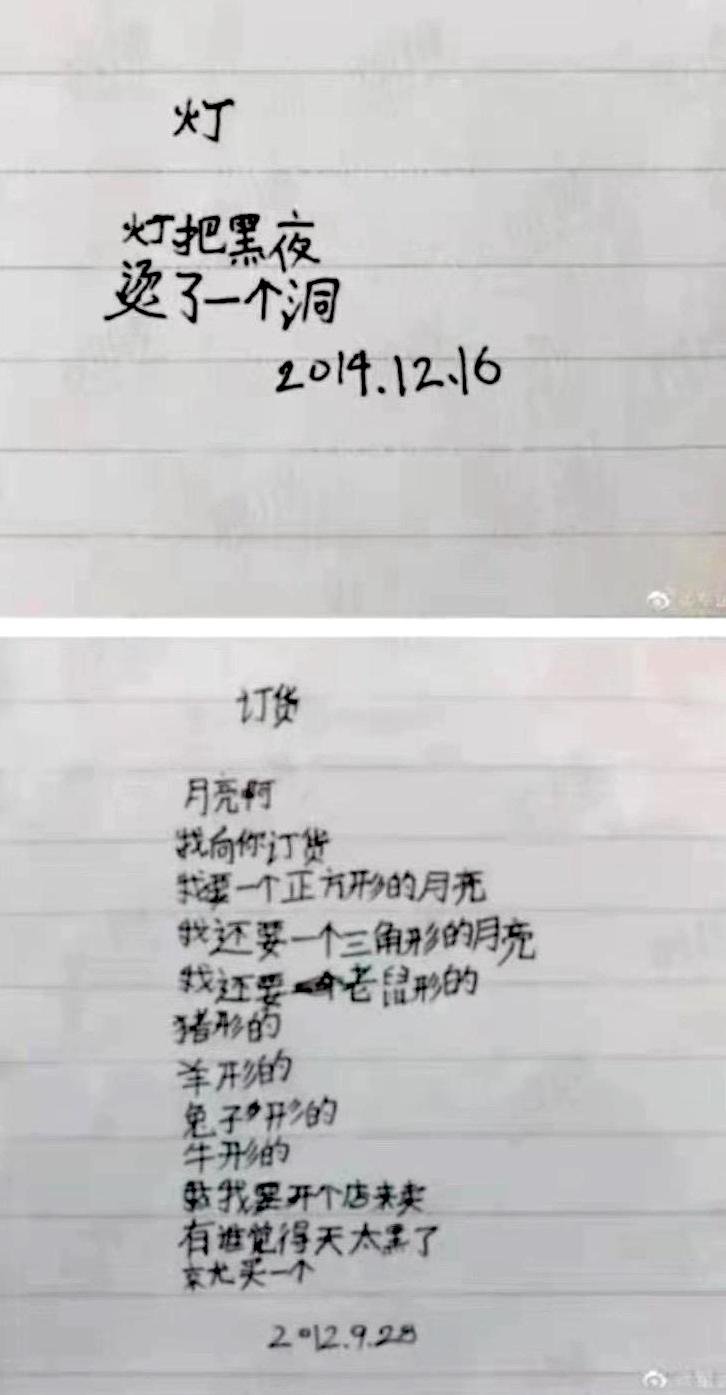 灯
灯把黑夜
烫了一个洞
2014.12.16
订货
月亮啊
我向你订货
我要一个正方形的月亮
我还要一个三角形的月亮
我还要一个老鼠形的
猪形的
羊形的
兔子形的
牛形的
我要开个店来卖
有谁觉得天太黑了
就买一个
2012.9.28